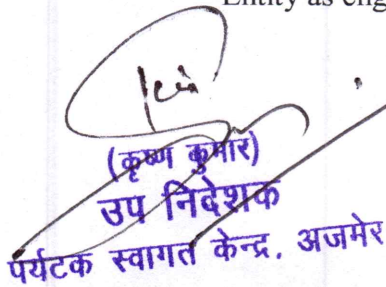 Entity as eng
(कृष्ण कुमार)
उप निदेशक
पर्यटक स्वागत केन्द्र, अजमेर